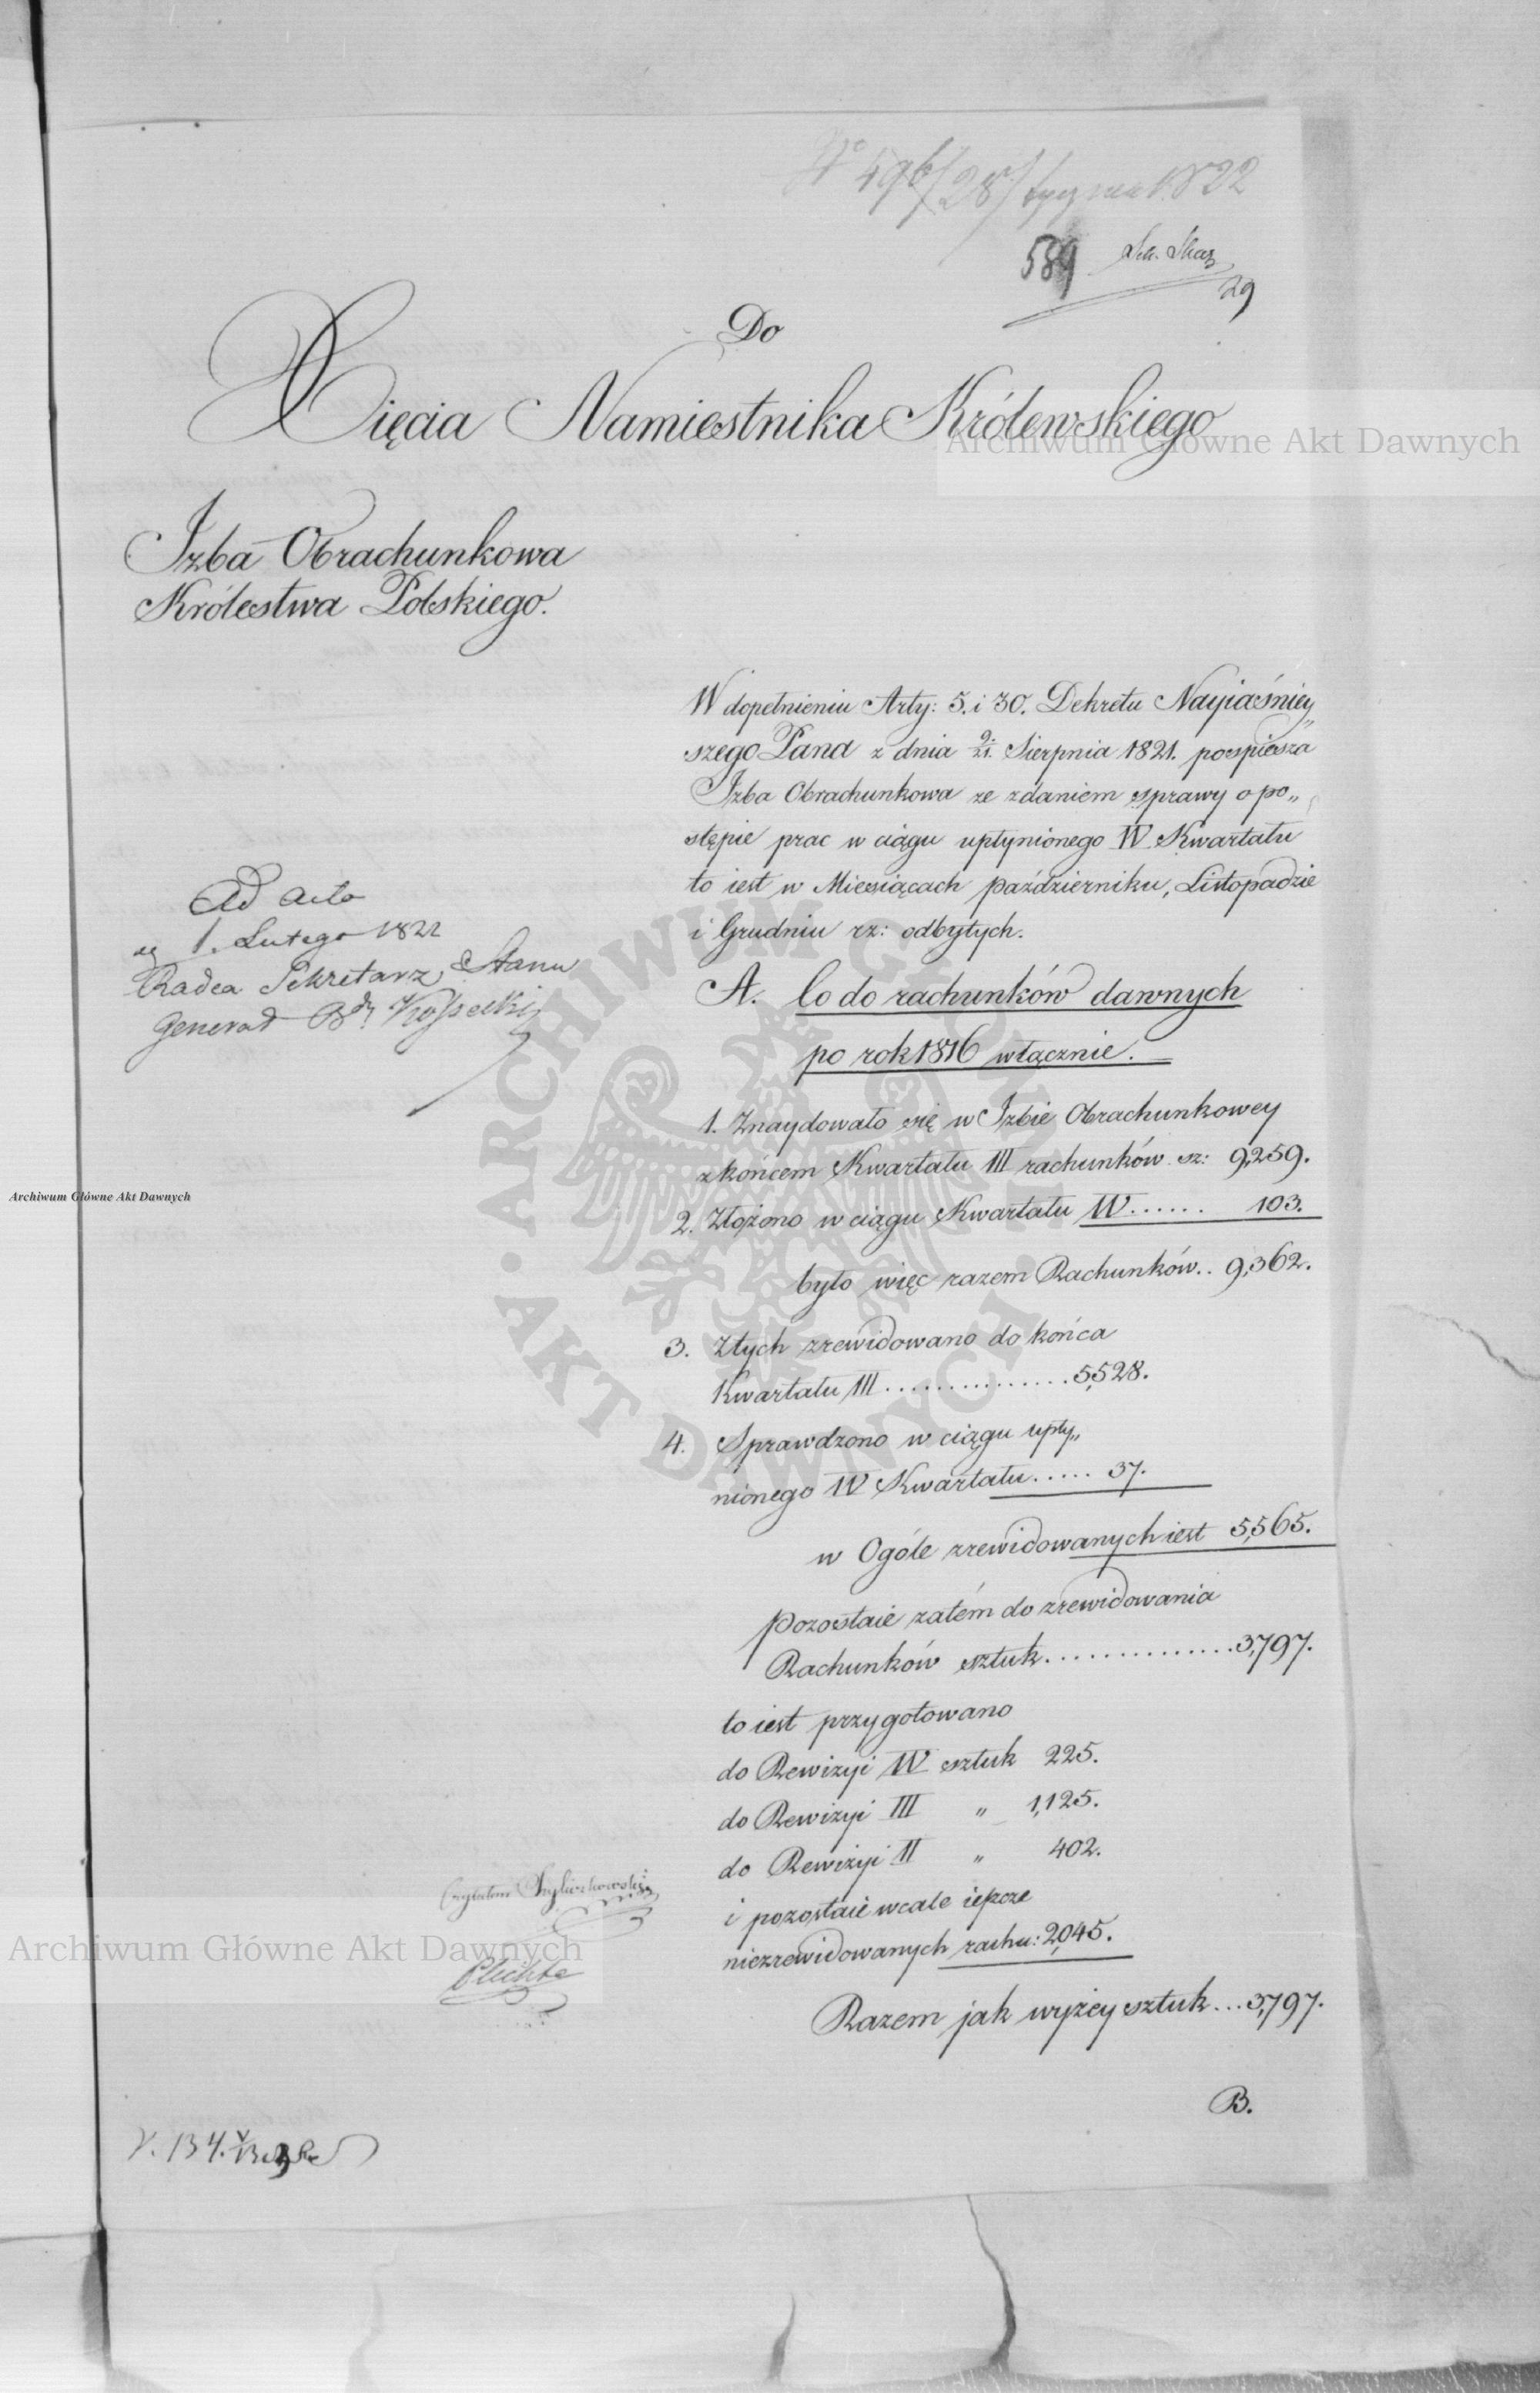 Nº 496/28/ stycznia 1822
589 Sek. Skar
29
Do
Xięcia Namiestnika Królewskiego
Archiwum Główne Akt Dawnych
Izba Obrachunkowa
Królestwa Polskiego.
W dopełnieniu Arty: 5. i 30. Dekretu Nayiaśniey„
szego Pana z dnia 9/21. Sierpnia 1821. pospiesza
Izba Obrachunkowa ze zdaniem sprawy o po„
stępie prac w ciągu upłynionego IV Kwartału
to iest w Miesiącach Październiku, Listopadzie
i Grudniu rz: odbytych.
Ad acta
1. Lutego 1822
Radca Sekretarz Stanu
Generał Kossecki
A. Co do rachunków dawnych
po rok 1816 włącznie.
1. Znaydowało się w Izbie Obrachunkowey
z końcem Kwartału III rachunków sz: 9,259.
Archiwum Główne Akt Dawnych
2. Złożono w ciągu Kwartału IV...... 103.
było więc razem Rachunków.. 9,362.
3. Z tych zrewidowano do końca
Kwartału III ............... 5,528.
4. Sprawdzono w ciągu upły„
nionego IV Kwartału..... 37.
w Ogóle zrewidowanych iest 5,565.
Pozostaie zatém do zrewidowania
Rachunków sztuk...............3,797.
to iest przygotowano
do Rewizyi IV sztuk 225.
do Rewizyi III „ 1,125.
do Rewizyi II „ 402.
i pozostaie wcale ieszcze
niezrewidowanych rachu: 2,045.
Razem jak wyżey sztuk...3,797.
Czytałem
Plichta
Archiwum Główne Akt Dawnych
B.
V. 134.
ARCHIWUM GŁÓWNE AKT DAWNYCH